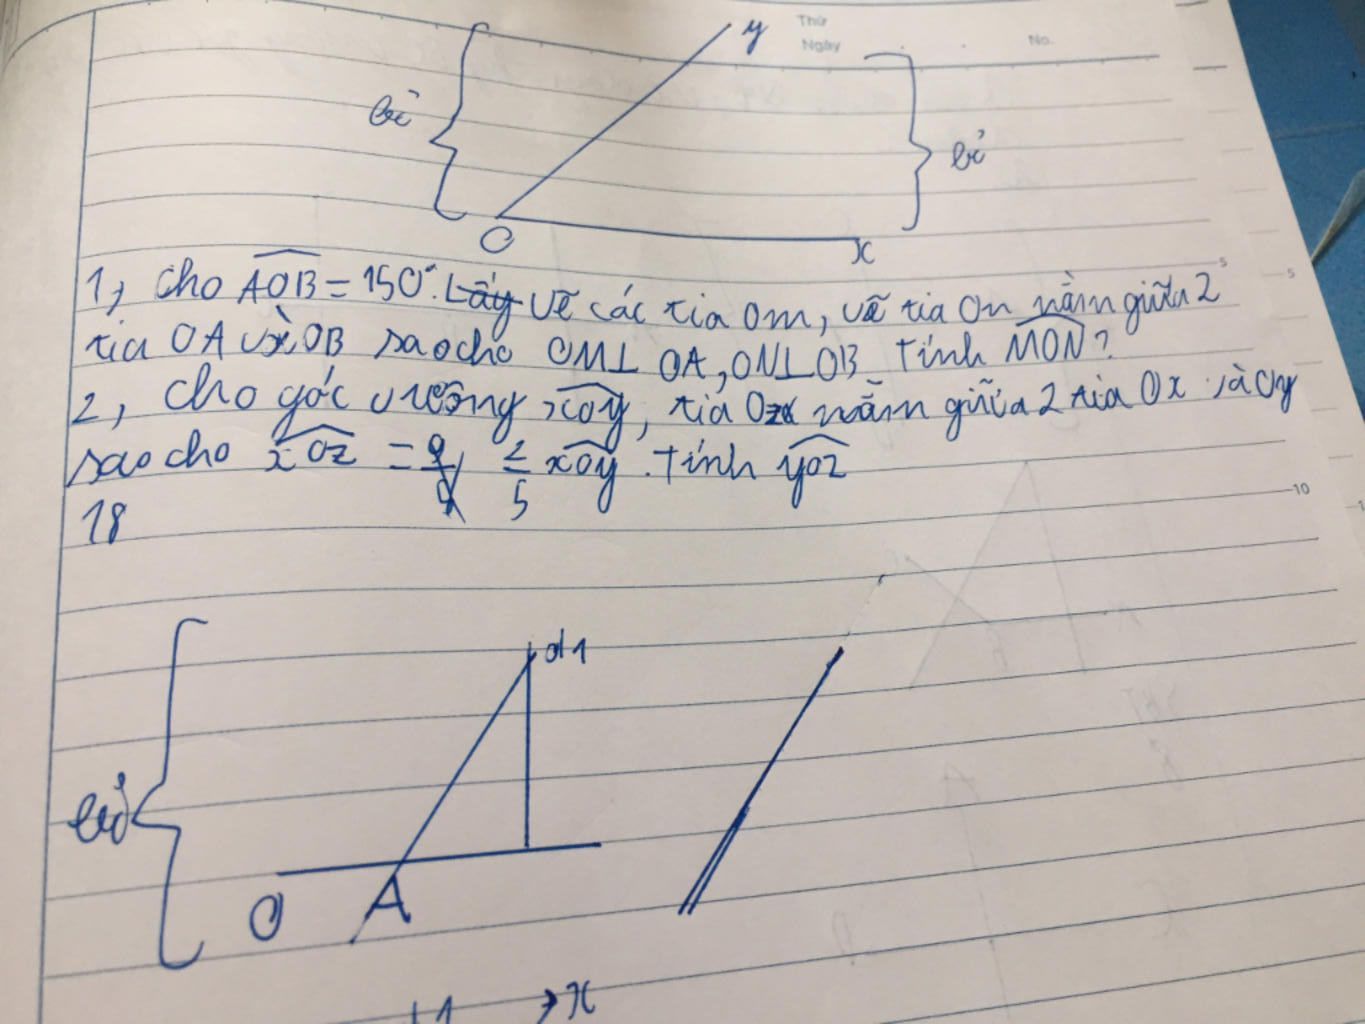 Thứ
Ngày
No.
y
bỏ
bỏ
O
x
1, Cho AOB = 150°. Lấy vẽ các tia Om, vẽ tia On nằm giữa 2
tia OA và OB sao cho OM⊥ OA, ON⊥OB Tính MON?
2, Cho góc vuông xoy, tia Oz nằm giữa 2 tia Ox và Oy
sao cho xOz = 2/5 xoy. Tính yoz
18
5
5
10
d1
bỏ
O
A
x